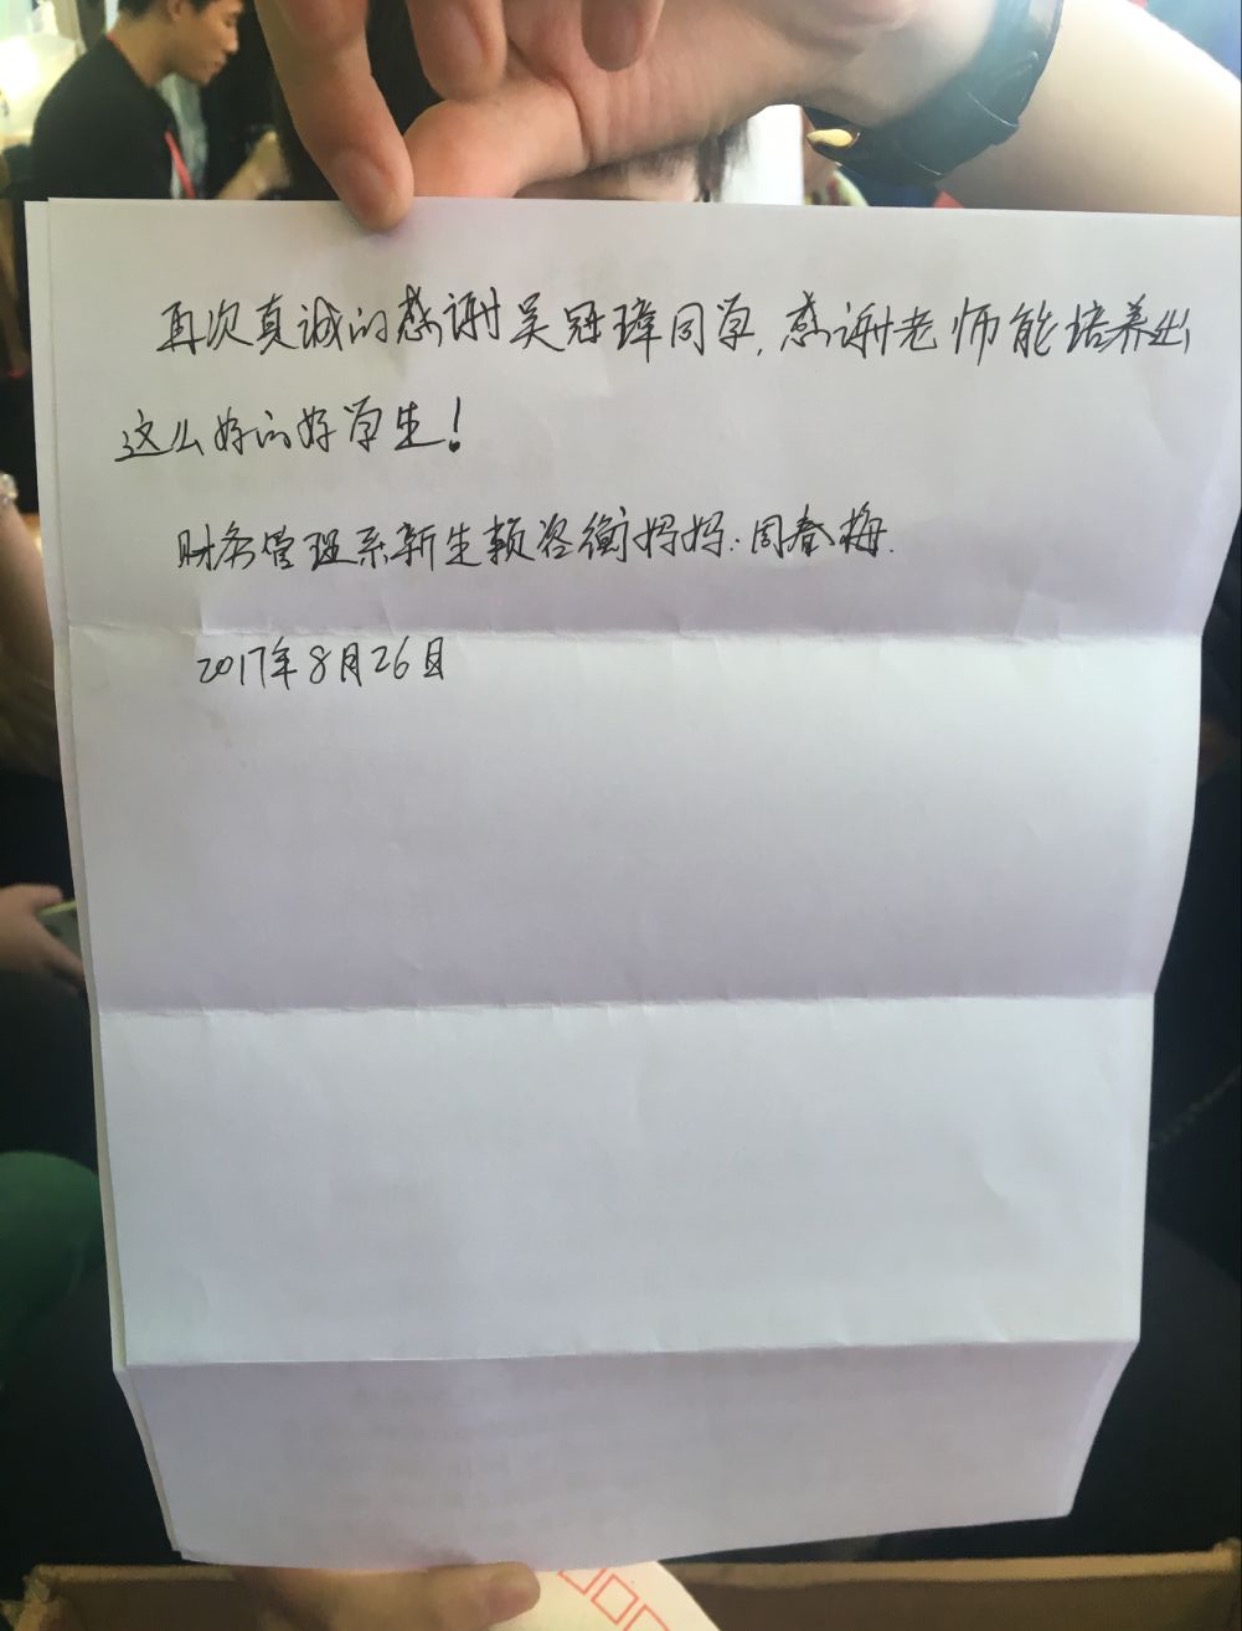 再次真诚的感谢吴冠璋同学,感谢老师能培养出
这么好的好学生!
财务管理系新生赖咨衡妈妈:周春梅.
2017年8月26日